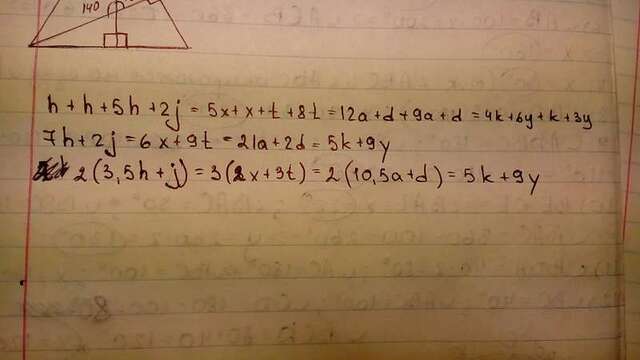 140
h + h + 5h + 2j = 5x + x + t + 8t = 12a + d + 9a + d = 4k + 6y + k + 3y
7h + 2j = 6x + 9t = 21a + 2d = 5k + 9y
2(3,5h + j) = 3(2x + 3t) = 2(10,5a + d) = 5k + 9y